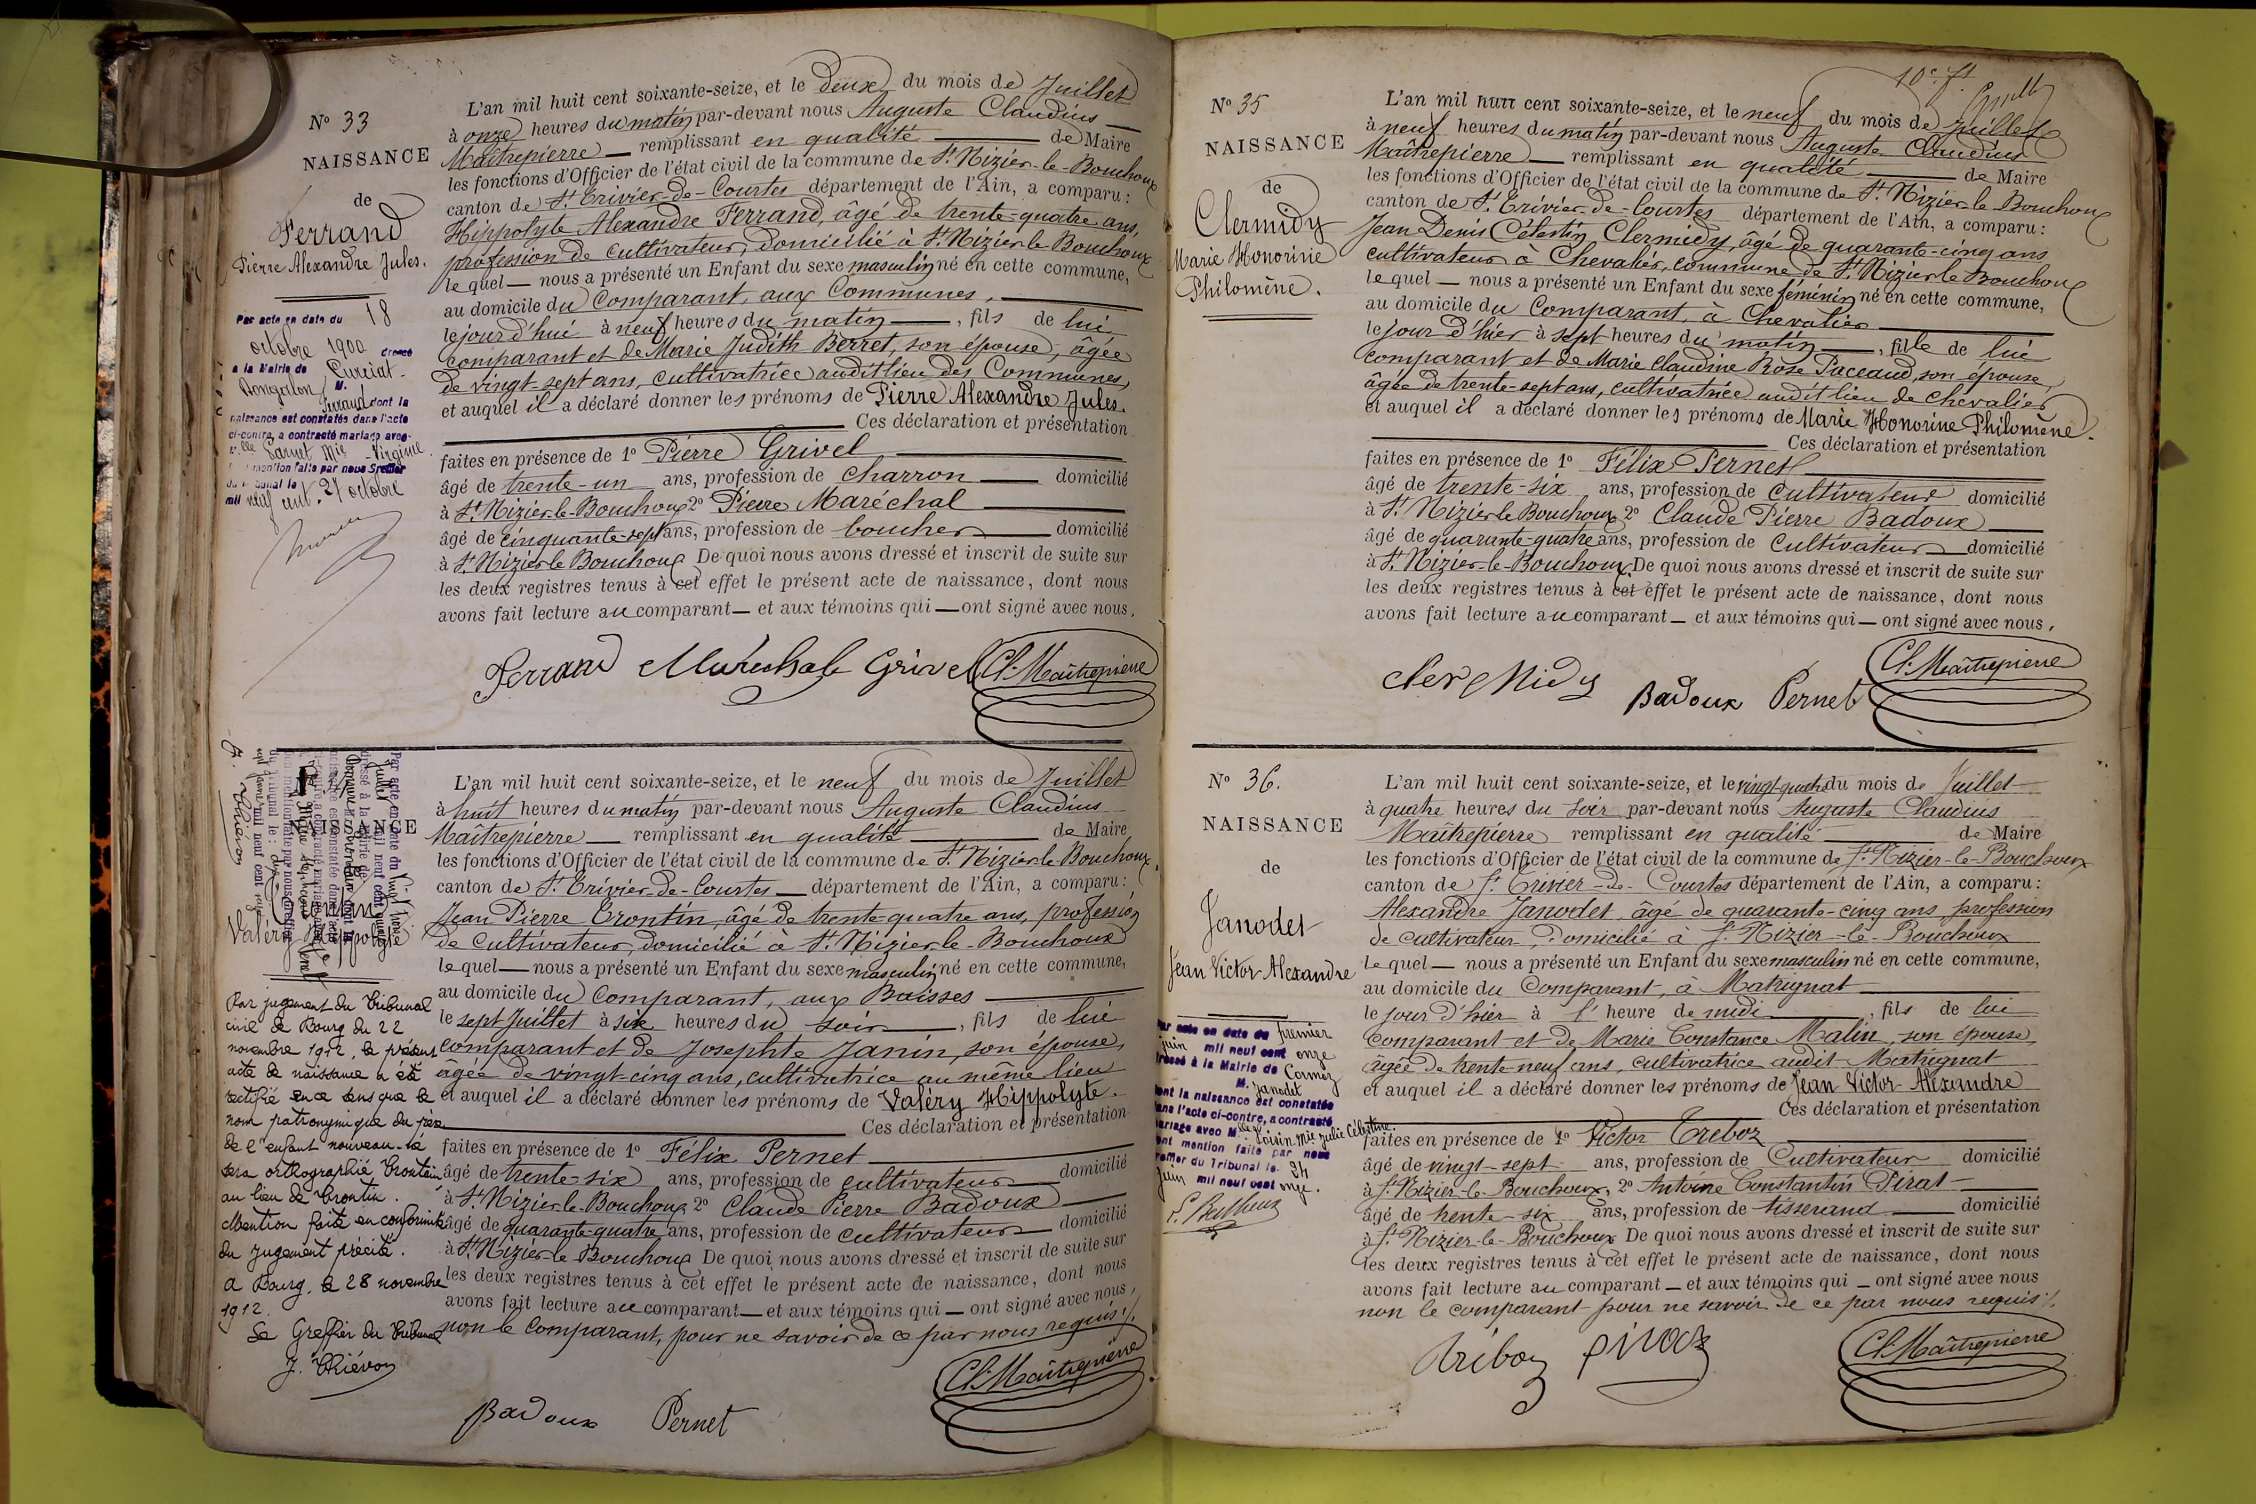 N° 33
NAISSANCE
de
Ferrand
Pierre Alexandre Jules.
Par acte en date du 18
octobre 1900 dressé
a la Mairie de Curciat-
Dongalon M.
Ferrand dont la
naissance est constatée dans l'acte
ci-contre, a contracté mariage avec
Mie Virginie
mention faite par nous Greffier
du Tribunal le
mil neuf cent. 27 octobre
L'an mil huit cent soixante-seize, et le deux du mois de Juillet
à onze heures du matin par-devant nous Auguste Claudius
Maîtrepierre — remplissant en qualité — de Maire
les fonctions d'Officier de l'état civil de la commune de St. Nizier-le-Bouchoux
canton de St. Trivier-de-Courtes département de l'Ain, a comparu :
Hippolyte Alexandre Ferrand, âgé de trente-quatre ans,
profession de cultivateur, domicilié à St. Nizier le Bouchoux
lequel — nous a présenté un Enfant du sexe masculin né en cette commune,
au domicile du Comparant, aux Communes,
le jour d'hui à neuf heures du matin —, fils de lui
comparant et de Marie Judith Berret, son épouse, âgée
de vingt-sept ans, cultivatrice audit lieu des Communes,
et auquel il a déclaré donner les prénoms de Pierre Alexandre Jules.
Ces déclaration et présentation
faites en présence de 1° Pierre Grivel
âgé de trente-un ans, profession de charron — domicilié
à St. Nizier-le-Bouchoux 2° Pierre Maréchal
âgé de cinquante-sept ans, profession de boucher — domicilié
à St. Nizier-le Bouchoux De quoi nous avons dressé et inscrit de suite sur
les deux registres tenus à cet effet le présent acte de naissance, dont nous
avons fait lecture au comparant — et aux témoins qui — ont signé avec nous.
Ferrand Maréchal Grivel Cl. Maîtrepierre
NAISSANCE
Valéry Hippolyte
Par jugement du Tribunal
civil de Bourg du 22
novembre 1912, le présent
acte de naissance a été
rectifié en ce sens que le
nom patronymique du père
de l'enfant nouveau-né
sera orthographié Trontin
au lieu de Crontin.
Mention faite en conformité
du jugement précité.
A Bourg, le 28 novembre
1912.
Le Greffier du Tribunal
J. Thiévon
L'an mil huit cent soixante-seize, et le neuf du mois de Juillet
à huit heures du matin par-devant nous Auguste Claudius
Maîtrepierre — remplissant en qualité — de Maire
les fonctions d'Officier de l'état civil de la commune de St. Nizier le Bouchoux
canton de St. Trivier-de-Courtes — département de l'Ain, a comparu :
Jean Pierre Crontin, âgé de trente-quatre ans, profession
de cultivateur, domicilié à St. Nizier-le-Bouchoux
lequel — nous a présenté un Enfant du sexe masculin né en cette commune,
au domicile du Comparant, aux Baisses
le sept Juillet à six heures du soir —, fils de lui
comparant et de Josephte Janin, son épouse,
âgée de vingt-cinq ans, cultivatrice au même lieu
et auquel il a déclaré donner les prénoms de Valéry Hippolyte.
Ces déclaration et présentation
faites en présence de 1° Félix Pernet
âgé de trente-six ans, profession de cultivateur — domicilié
à St. Nizier-le-Bouchoux 2° Claude Pierre Badoux
âgé de quarante-quatre ans, profession de cultivateur — domicilié
à St. Nizier-le Bouchoux De quoi nous avons dressé et inscrit de suite sur
les deux registres tenus à cet effet le présent acte de naissance, dont nous
avons fait lecture au comparant — et aux témoins qui — ont signé avec nous,
non le comparant, pour ne savoir de ce par nous requis ./.
Cl. Maîtrepierre
Badoux Pernet
10e. ft
N° 35
NAISSANCE
de
Clermidy
Marie Honorine
Philomène.
L'an mil huit cent soixante-seize, et le neuf du mois de Juillet
à neuf heures du matin par-devant nous Auguste Claudius
Maîtrepierre — remplissant en qualité — de Maire
les fonctions d'Officier de l'état civil de la commune de St. Nizier-le Bouchoux
canton de St. Trivier-de-Courtes département de l'Ain, a comparu :
Jean Denis Célestin Clermidy, âgé de quarante-cinq ans
cultivateur à Chevalier, commune de St. Nizier le Bouchoux
lequel — nous a présenté un Enfant du sexe féminin né en cette commune,
au domicile du Comparant, à Chevalier
le jour d'hier à sept heures du matin —, fille de lui
comparant et de Marie Claudine Rose Paccaud, son épouse,
âgée de trente-sept ans, cultivatrice audit lieu de Chevalier
et auquel il a déclaré donner les prénoms de Marie Honorine Philomène.
Ces déclaration et présentation
faites en présence de 1° Félix Pernet
âgé de trente-six ans, profession de cultivateur domicilié
à St. Nizier le Bouchoux 2° Claude Pierre Badoux
âgé de quarante-quatre ans, profession de cultivateur — domicilié
à St. Nizier-le-Bouchoux. De quoi nous avons dressé et inscrit de suite sur
les deux registres tenus à cet effet le présent acte de naissance, dont nous
avons fait lecture au comparant — et aux témoins qui — ont signé avec nous.
Clermidy Badoux Pernet Cl. Maîtrepierre
N° 36.
NAISSANCE
de
Janodet
Jean Victor Alexandre
Par acte en date du premier
juin mil neuf cent onze
dressé à la Mairie de Cormoz
M. Janodet
dont la naissance est constatée
dans l'acte ci-contre, a contracté
mariage avec Mlle Loisin Mie Julie Célestine.
dont mention faite par nous
Greffier du Tribunal le 24
juin mil neuf cent onze.
L'an mil huit cent soixante-seize, et le vingt-quatre du mois de Juillet
à quatre heures du soir par-devant nous Auguste Claudius
Maîtrepierre remplissant en qualité — de Maire
les fonctions d'Officier de l'état civil de la commune de St. Nizier-le-Bouchoux
canton de St. Trivier-de-Courtes département de l'Ain, a comparu :
Alexandre Janodet, âgé de quarante-cinq ans, profession
de cultivateur, domicilié à St. Nizier-le-Bouchoux
lequel — nous a présenté un Enfant du sexe masculin né en cette commune,
au domicile du Comparant, à Matrignat
le jour d'hier à l' heure de midi —, fils de lui
Comparant et de Marie Constance Malin, son épouse,
âgée de trente neuf ans, cultivatrice audit Matrignat
et auquel il a déclaré donner les prénoms de Jean Victor Alexandre
Ces déclaration et présentation
faites en présence de 1° Victor Treboz
âgé de vingt-sept ans, profession de Cultivateur domicilié
à St. Nizier-le-Bouchoux, 2° Antoine Constantin Pirat
âgé de trente-six ans, profession de tisserand — domicilié
à St. Nizier-le-Bouchoux De quoi nous avons dressé et inscrit de suite sur
les deux registres tenus à cet effet le présent acte de naissance, dont nous
avons fait lecture au comparant — et aux témoins qui — ont signé avec nous
non le comparant pour ne savoir de ce par nous requis ./.
Tréboz Pirat Cl. Maîtrepierre